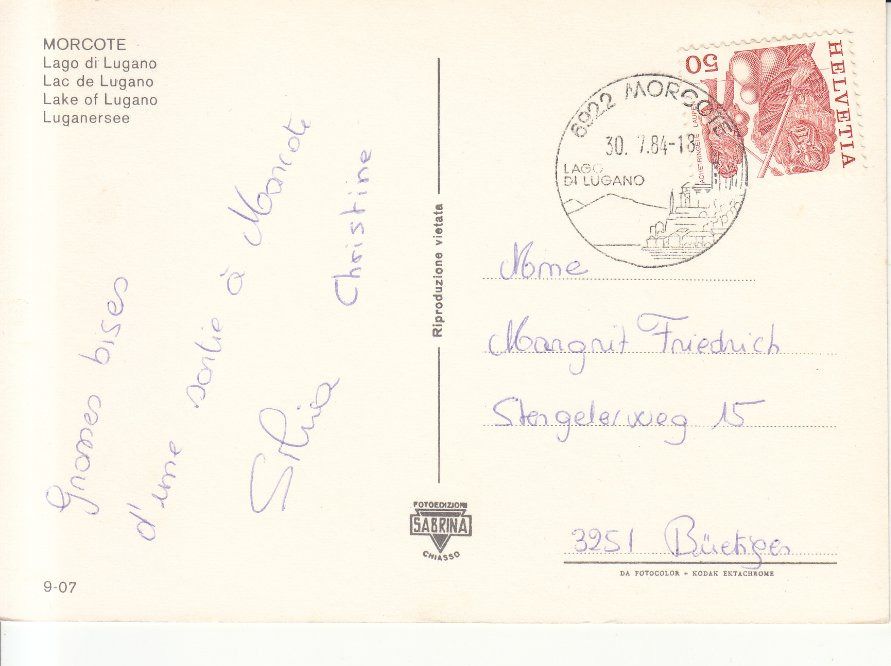 MORCOTE
Lago di Lugano
Lac de Lugano
Lake of Lugano
Luganersee
Grosses bises
d'une sortie à Morcote
Silvia
Christine
9-07
Riproduzione vietata
FOTOEDIZIONI
SABRINA
CHIASSO
HELVETIA
50
6922 MORCOTE
30. 7.84-18
LAGO
DI LUGANO
Mme
Margrit Friedrich
Stengelerweg 15
3251 Büetigen
DA FOTOCOLOR - KODAK EKTACHROME